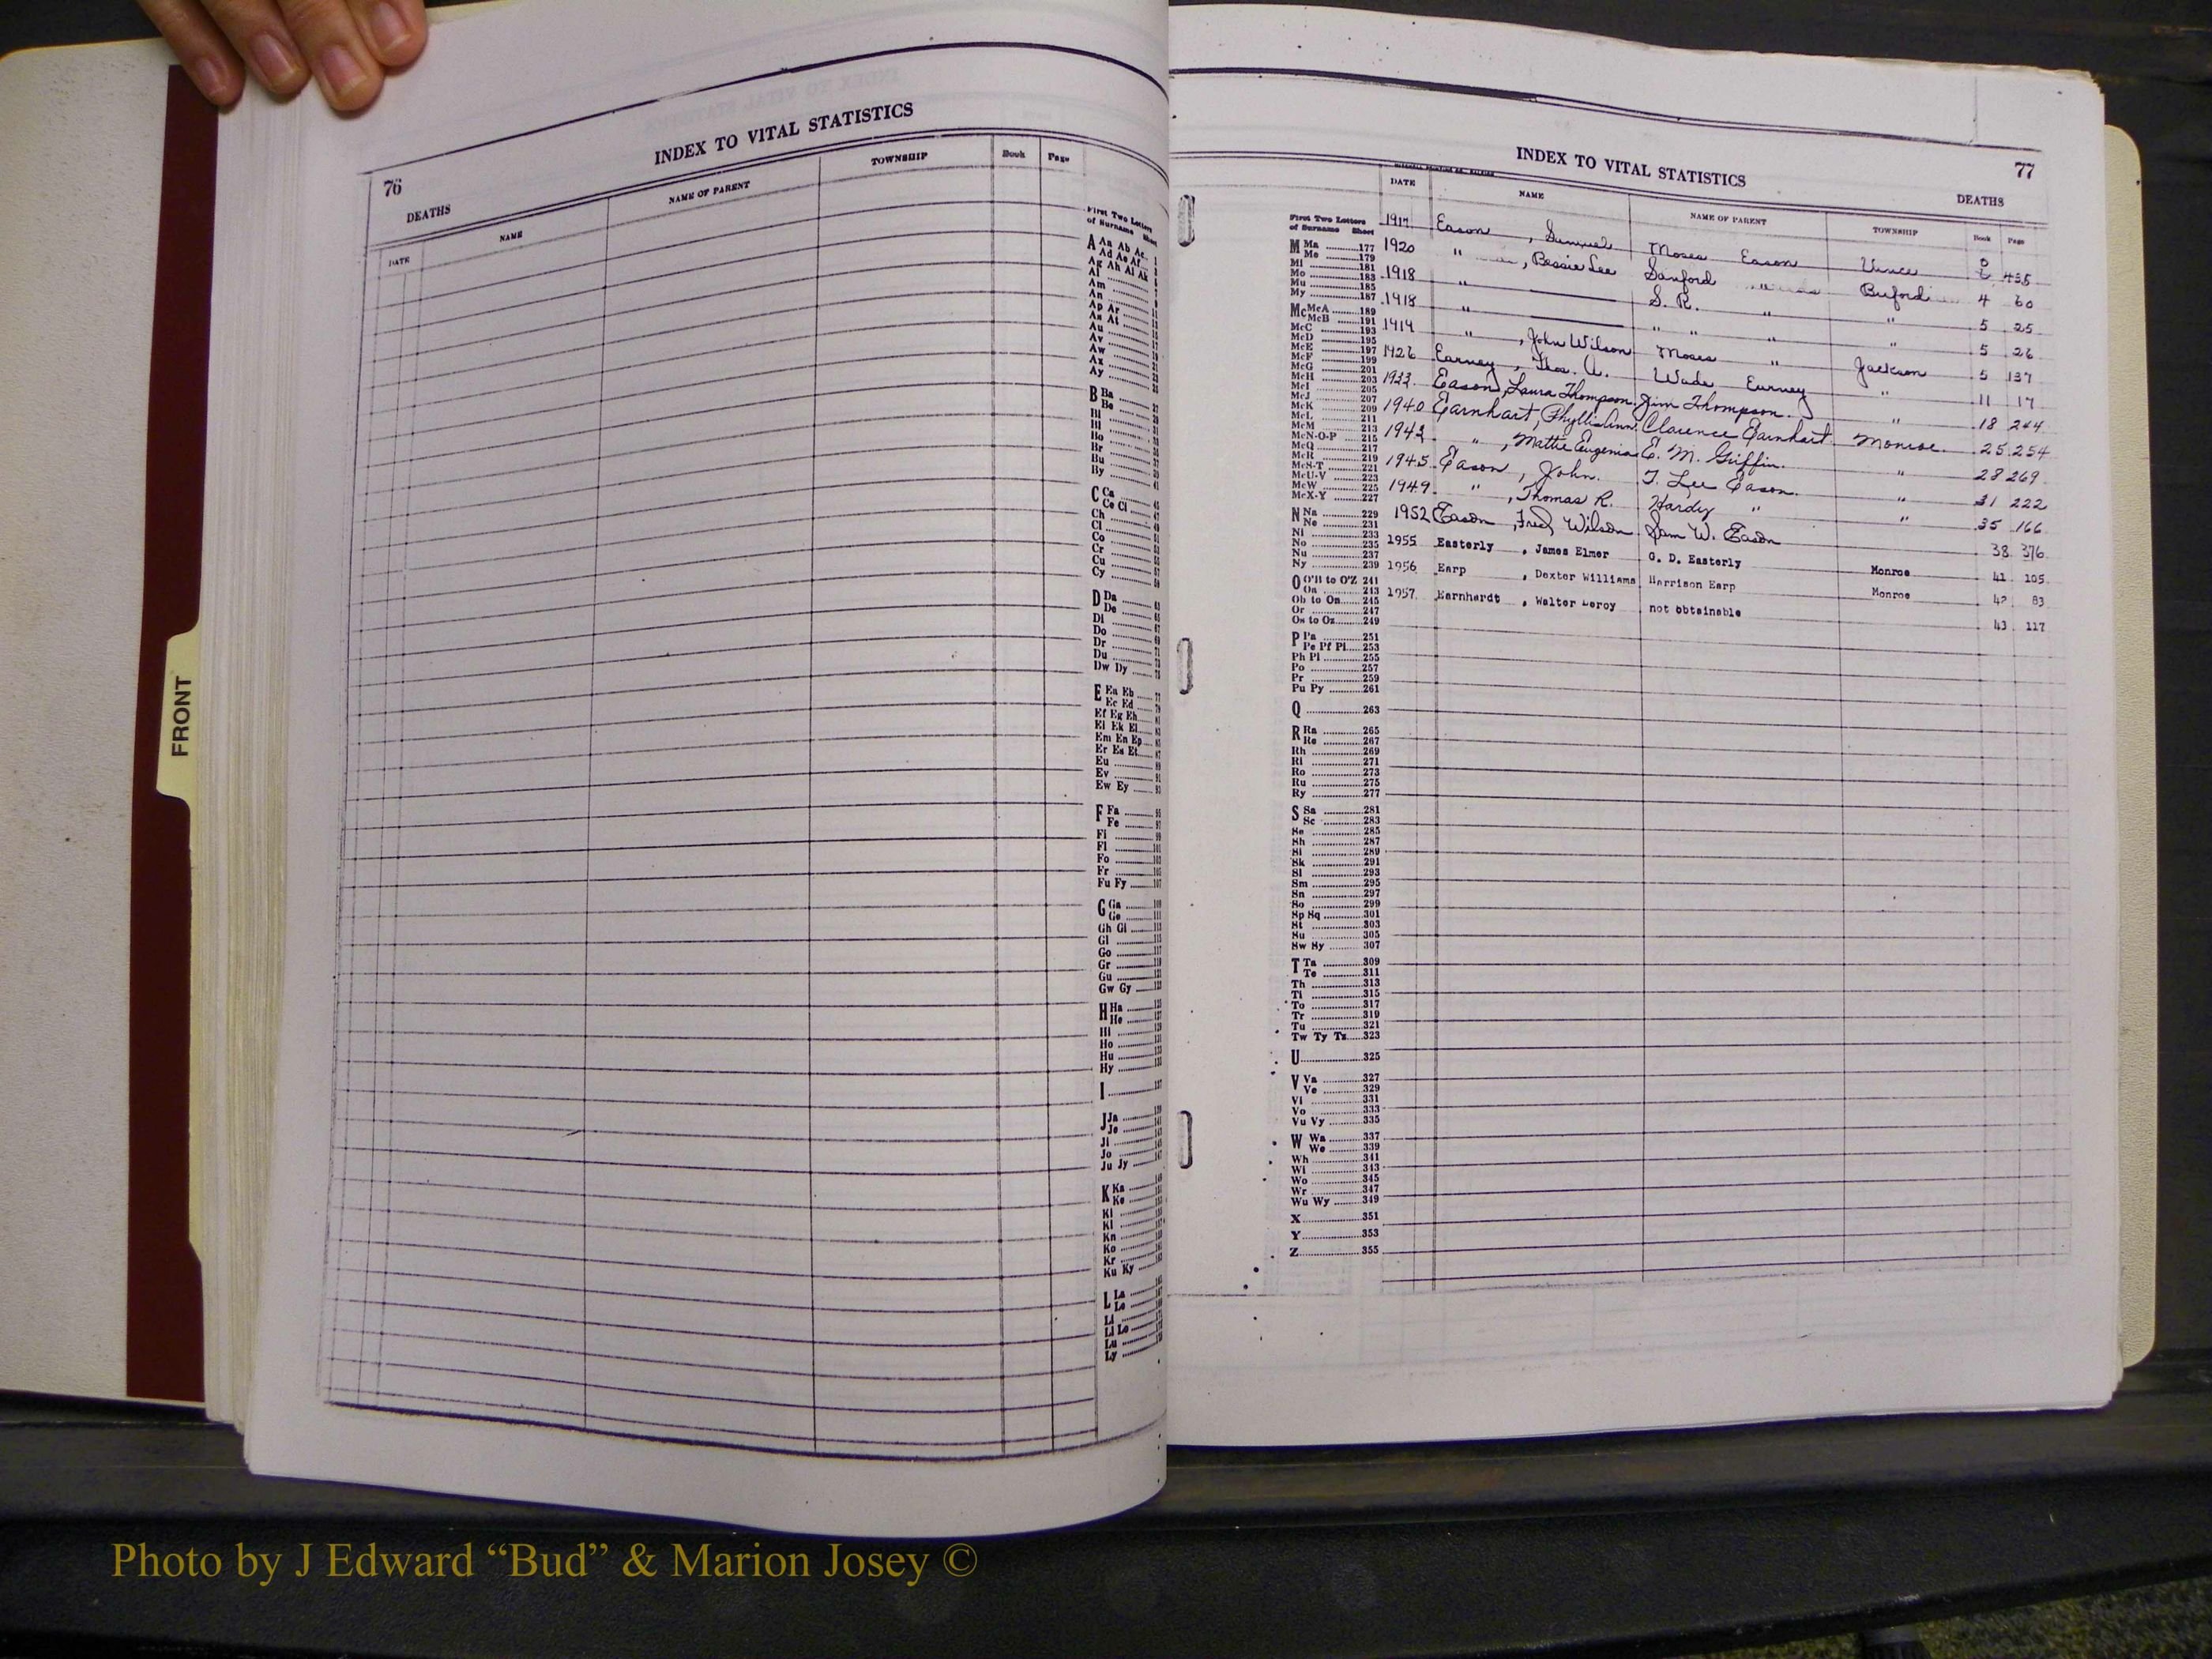 FRONT
76
INDEX TO VITAL STATISTICS
DEATHS
DATE NAME NAME OF PARENT TOWNSHIP Book Page
First Two Letters
of Surname Sheet
A Aa Ab Ac
Ad Ae Af
Ag Ah Ai Ak
Al
Am
An
Ap Ar
As At
Au
Av
Aw
Ax
Ay
B Ba
Be
Bi
Bl
Bo
Br
Bu
By
C Ca
Ce Ci
Ch
Cl
Co
Cr
Cu
Cy
D Da
De
Di
Do
Dr
Du
Dw Dy
E Ea Eb
Ec Ed
Ef Eg Eh
Ei Ek El
Em En Ep
Er Es Et
Eu
Ev
Ew Ey
F Fa
Fe
Fi
Fl
Fo
Fr
Fu Fy
G Ga
Ge
Gh Gi
Gl
Go
Gr
Gu
Gw Gy
H Ha
He
Hi
Ho
Hu
Hy
I
J Ja
Je
Ji
Jo
Ju Jy
K Ka
Ke
Ki
Kl
Kn
Ko
Kr
Ku Ky
L La
Le
Li
Ll Lo
Lu
Ly
INDEX TO VITAL STATISTICS
77
DEATHS
DATE NAME NAME OF PARENT TOWNSHIP Book Page
1917 Eason , Samuel Moses Eason Vance 435
1920 " , Bessie Lee Sanford " Buford 4 60
1918 " S. R. " " 5 25
1918 " " " " 5 26
1919 " , John Wilson Moses " Jackson 5 137
1926 Earney , Thos. A. Wade Earney " 11 17
1933 Eason, Laura Thompson Jim Thompson " 18 244
1940 Earnhart, Phyllis Ann Clarence Earnhart Monroe 25 254
1942 " , Mattie Eugenia E. M. Griffin " 28 269
1945 Eason , John T. Lee Eason " 31 222
1949 " , Thomas R. Hardy " " 35 166
1952 Eason , Fred Wilson Sam W. Eason 38 376
1955 Easterly , James Elmer G. D. Easterly Monroe 41 105
1956 Earp , Dexter Williams Harrison Earp Monroe 42 83
1957 Earnhardt , Walter Leroy not obtainable 43 117
First Two Letters
of Surname Sheet
M Ma 177
Me 179
Mi 181
Mo 183
Mu 185
My 187
Mc McA 189
McB 191
McC 193
McD 195
McE 197
McF 199
McG 201
McH 203
McI 205
McJ 207
McK 209
McL 211
McM 213
McN-O-P 215
McQ 217
McR 219
McS-T 221
McU-V 223
McW 225
McX-Y 227
N Na 229
Ne 231
Ni 233
No 235
Nu 237
Ny 239
O O'H to O'Z 241
Oa 243
Ob to On 245
Or 247
Os to Oz 249
P Pa 251
Pe Pf Pi 253
Ph Pl 255
Po 257
Pr 259
Pu Py 261
Q 263
R Ra 265
Re 267
Rh 269
Ri 271
Ro 273
Ru 275
Ry 277
S Sa 281
Sc 283
Se 285
Sh 287
Si 289
Sk 291
Sl 293
Sm 295
Sn 297
So 299
Sp Sq 301
St 303
Su 305
Sw Sy 307
T Ta 309
Te 311
Th 313
Ti 315
To 317
Tr 319
Tu 321
Tw Ty Tz 323
U 325
V Va 327
Ve 329
Vi 331
Vo 333
Vu Vy 335
W Wa 337
We 339
Wh 341
Wi 343
Wo 345
Wr 347
Wu Wy 349
X 351
Y 353
Z 355
Photo by J Edward “Bud” & Marion Josey ©